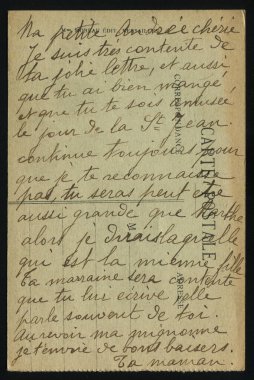 Ma petite Andrée chérie
Je suis très contente de
ta jolie lettre, et aussi
que tu ai bien mangé
et que tu te sois amusée
le jour de la St Jean
continue toujours pour
que je te reconnaisse
pas, tu seras peut être
aussi grande que Marthe
alors je dirais laquelle
qui est la mienne fille
Ta marraine sera contente
que tu lui écrive elle
parle souvent de toi.
Au revoir ma mignonne
je t'envoie de bons baisers.
Ta maman.
CARTE POSTALE
CORRESPONDANCE
ADRESSE